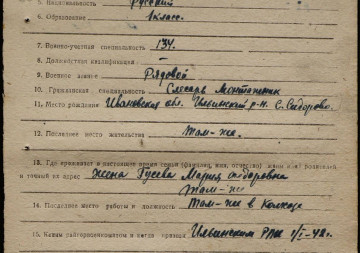 5. Национальность Русский
6. Образование 1 класс.
7. Военно-учетная специальность 134.
8. Должностная квалификация —
9. Военное звание Рядовой
10. Гражданская специальность Слесарь Монтажник
11. Место рождения Ивановская обл. Ильинский р-н. С. Сидорово.
12. Последнее место жительства Там-же.
13. Где проживает в настоящее время семья (фамилия, имя, отчество) жены или родителей
и точный их адрес жена Гусева Мария
Там-же
14. Последнее место работы и должность Там-же в Колхозе
15. Каким райгорвоенкоматом и когда призван Ильинским РВК 1/I-42г.